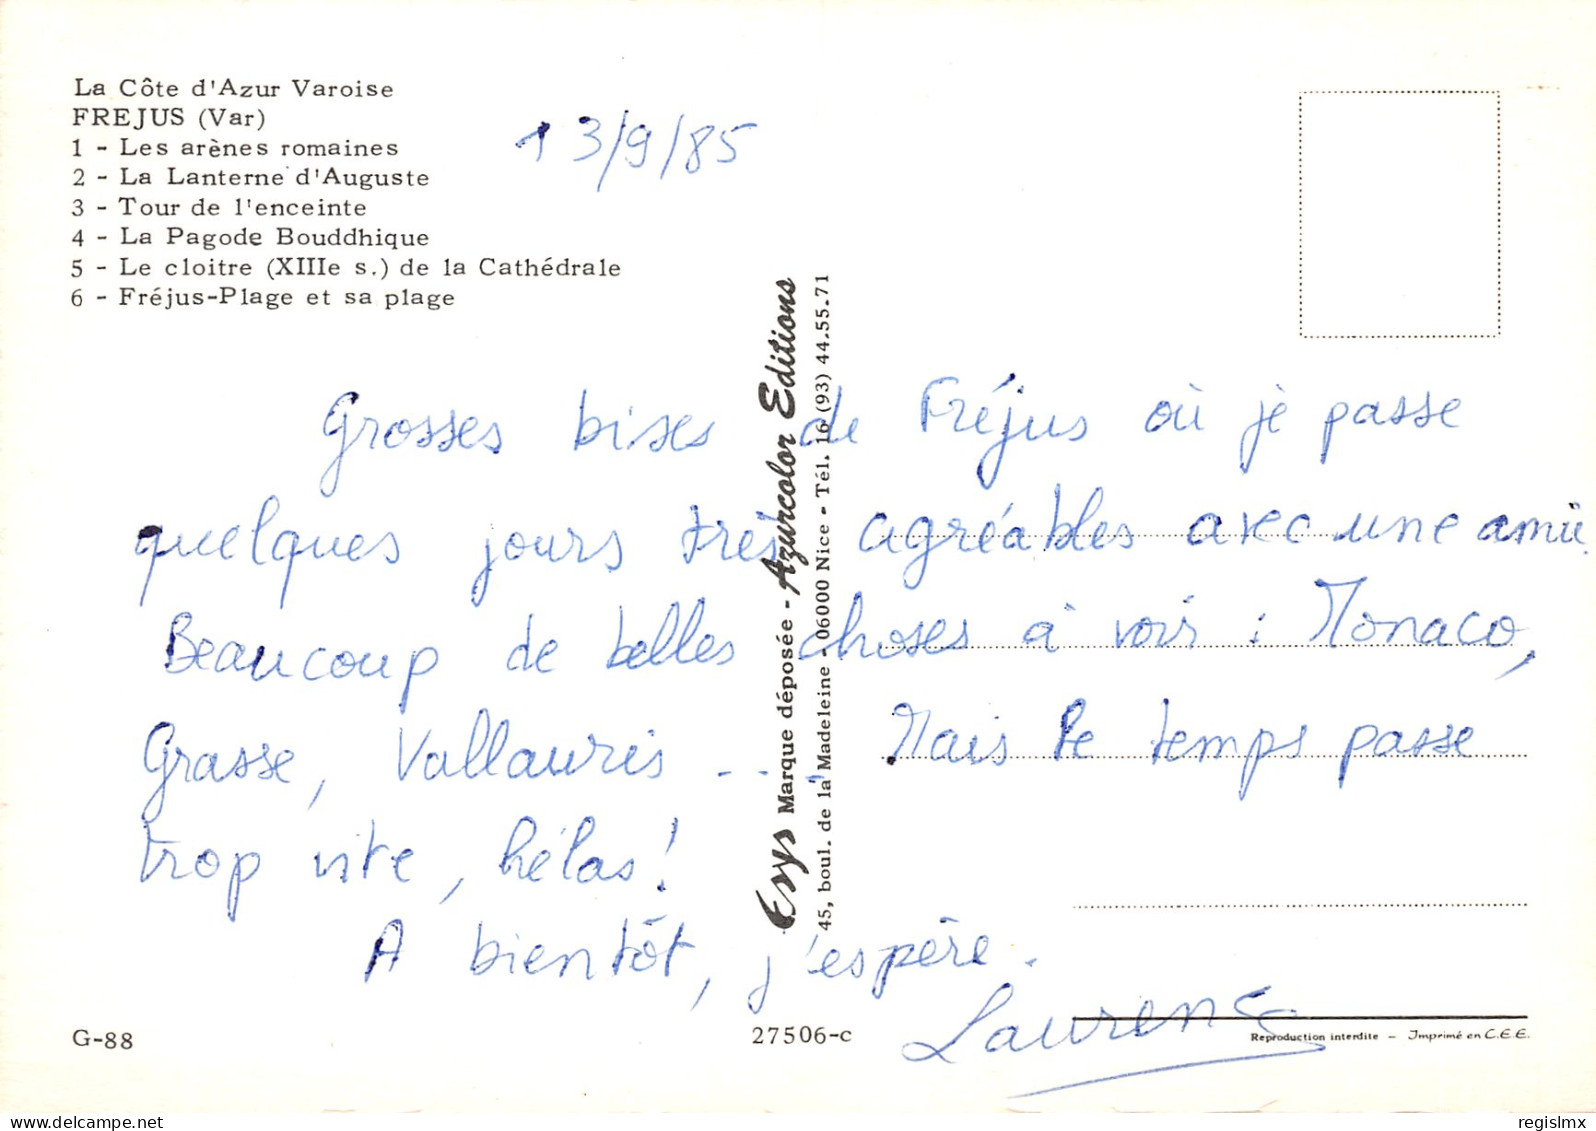 La Côte d'Azur Varoise
FREJUS (Var)
1 - Les arènes romaines
2 - La Lanterne d'Auguste
3 - Tour de l'enceinte
4 - La Pagode Bouddhique
5 - Le cloitre (XIIIe s.) de la Cathédrale
6 - Fréjus-Plage et sa plage
13/9/85
Grosses bises de Fréjus où je passe
quelques jours très agréables avec une amie
Beaucoup de belles choses à voir : Monaco,
Grasse, Vallauris ... Mais le temps passe
trop vite, hélas !
A bientôt, j'espère.
Laurence
Esys Marque déposée - Azurcolor Editions
45, boul. de la Madeleine - 06000 Nice - Tél. 16 (93) 44.55.71
G-88
27506-c
Reproduction interdite - Imprimé en C.E.E.
delcampe.net
regislmx